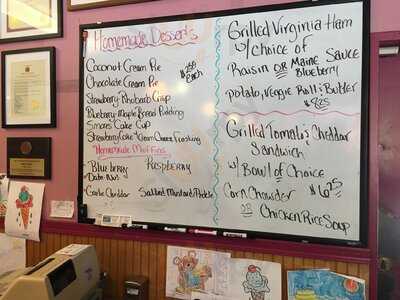 Homemade Desserts
Coconut Cream Pie
Chocolate Cream Pie
Each
Strawberry-Rhubarb Crisp
Blueberry Maple Bread Pudding
Smores Cake Cup
Strawberry Cake Cream Cheese Frosting
Homemade Muffins
Blueberry Raspberry
Date-Nut
Garlic Cheddar
Grilled Virginia Ham
w/ choice of
Raisin OR Maine Sauce
Blueberry
Potato, Veggie, Roll & Butter
Grilled Tomato & Cheddar
Sandwich
w/ Bowl of Choice
Corn Chowder
OR
Chicken Rice Soup